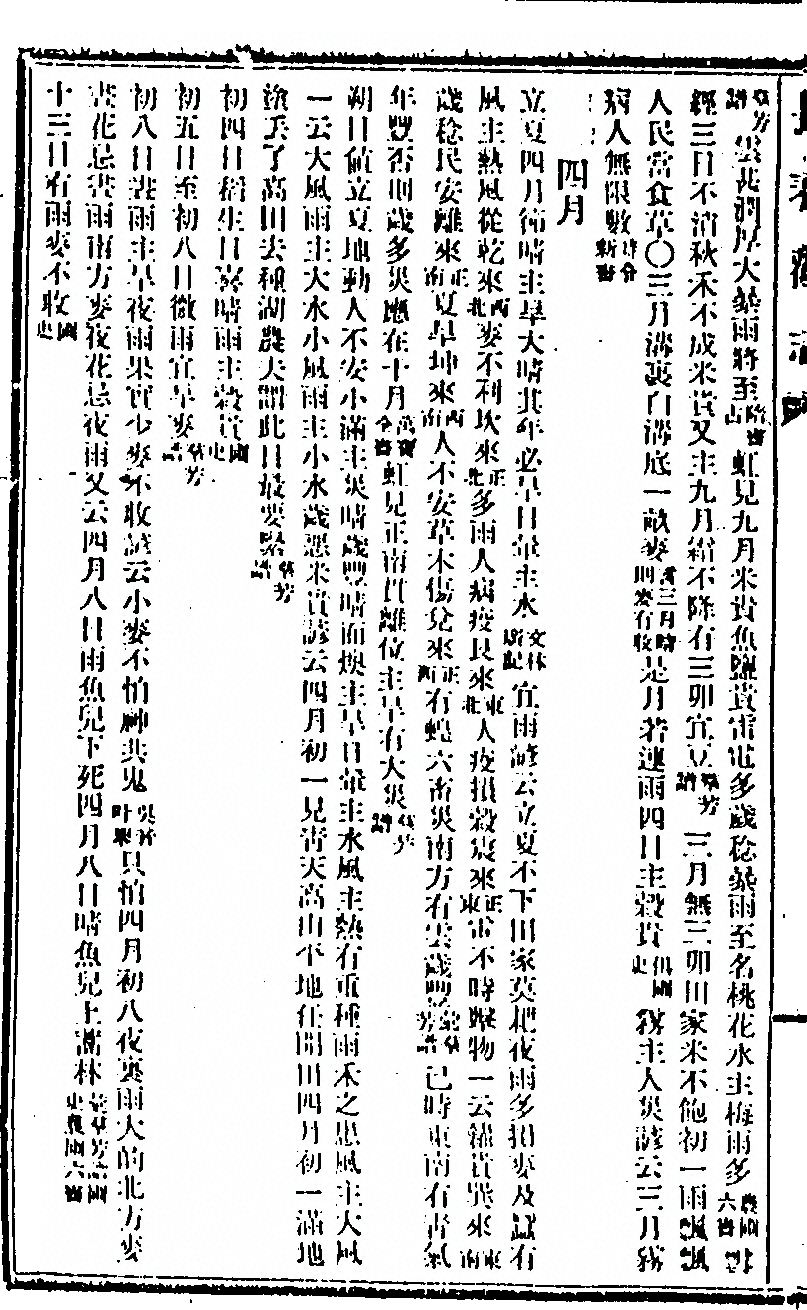 群芳譜 雲甚潤厚大暴雨將至 虹見九月米貴魚鹽貴雷電多歲稔暴雨至名桃花水主梅雨多農圃六書
經三日不消秋禾不成米貴又主九月霜不降有三卯宜豆群芳譜 三月無三卯田家米不飽初一雨飄飄
人民當食草〇三月溝裏白溝底一畝麥 三月時則麥有收是月若連雨四日主穀貴 霧主人災諺云三月霧
病人無限數
四月
立夏四月節晴主旱大晴其年必旱日暈主水文林 宜雨諺云立夏不下田家莫耙夜雨多損麥及 有
風主熱風從乾來西北麥不利坎來正北多雨人病疫艮來東北人疫損穀震來正東雷不時 物一云 貴巽來東南
歲稔民安離來正南夏旱坤來西南人不安草木傷兌來正西有蝗六畜災南方有雲歲豐 群芳譜 巳時東南有青氣
年豐否則歲多災應在十月萬寶全書虹見正南貫離位主旱有大災群芳譜
朔日值立夏地動人不安小滿主災晴歲豐晴而燠主旱日暈主水風主熱有重種雨禾之患風主大風
一云大風雨主大水小風雨主小水歲惡米貴諺云四月初一見青天高山平地任開田四月初一滿地
塗丟了高田去種湖農夫謂此日最要緊群芳譜
初四日稻生日喜晴雨主穀貴
初五日至初八日微雨宜旱麥群芳譜
初八日晝雨主旱夜雨果實少麥不收諺云小麥不怕神共鬼 只怕四月初八夜裏雨大約北方麥
晝花忌晝雨南方麥夜花忌夜雨又云四月八日雨魚兒下死四月八日晴魚兒上 林
十三日有雨麥不收